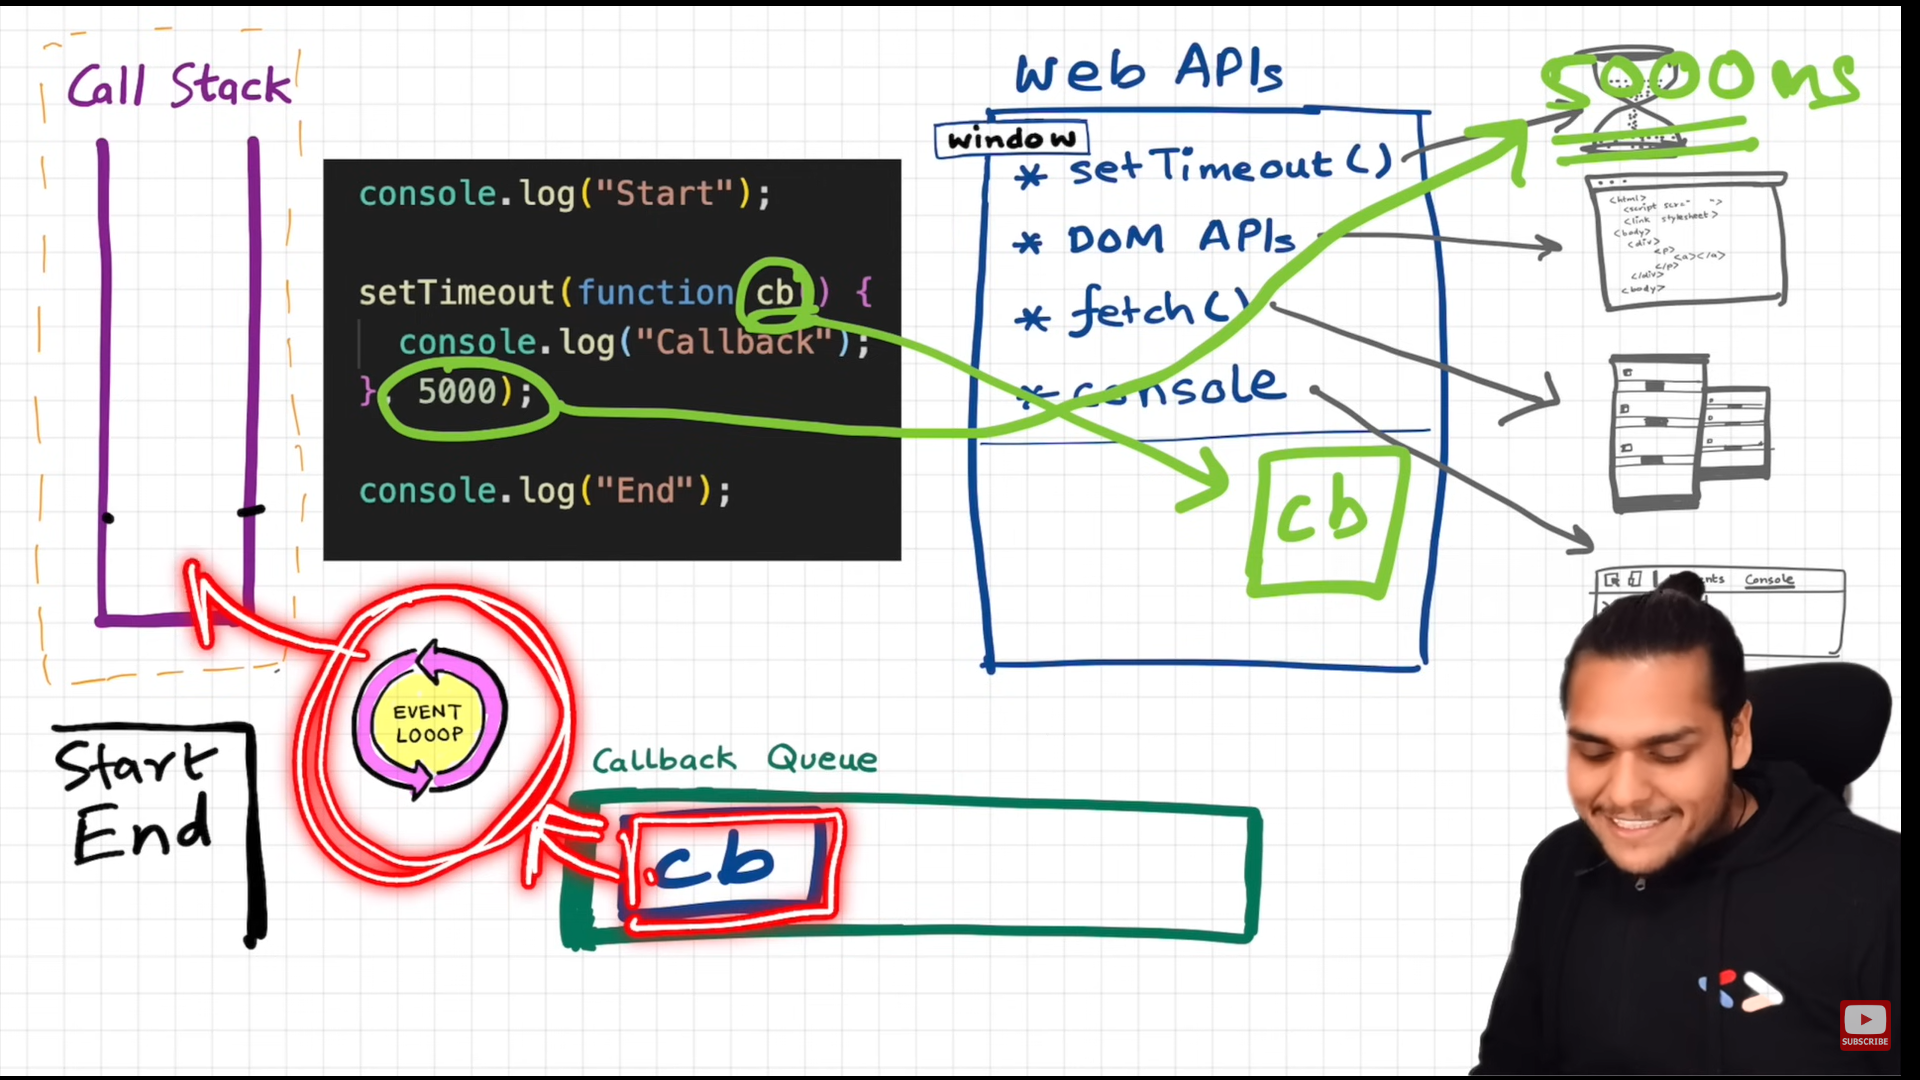 Call Stack
console.log("Start");
setTimeout(function cb() {
console.log("Callback");
}, 5000);
console.log("End");
Web APIs
window
* setTimeout()
* DOM APIs
* fetch()
* console
cb
5000 ms
<html>
<link stylesheet>
<body>
<div>
<p>
<a></a>
</p>
</div>
<body>
Console
EVENT
LOOOP
Start
End
Callback Queue
cb
SUBSCRIBE